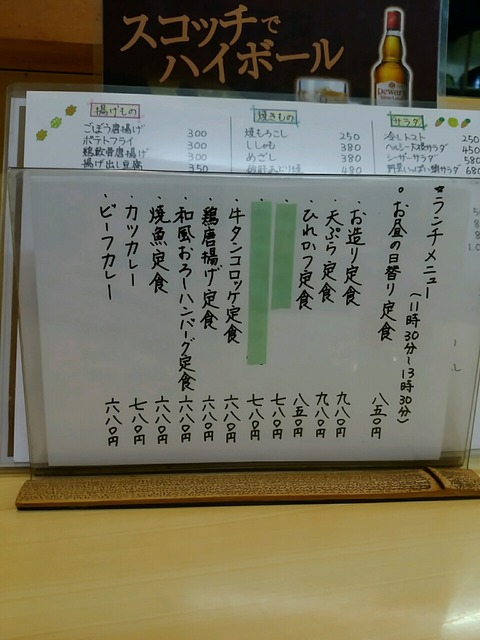 スコッチで
ハイボール
Dewar's
揚げもの
ごぼう唐揚げ 300
ポテトフライ 300
鶏軟骨唐揚げ 300
揚げ出し豆腐 350
焼きもの
焼もろこし 250
ししゃも 380
めざし 380
480
サラダ
冷しトマト 250
ヘルシー大根サラダ 450
シーザーサラダ 580
野菜いっぱい 680
☆ランチメニュー
(11時30分~13時30分)
◦お昼の日替り定食 八五〇円
・お造り定食 九八〇円
・天ぷら定食 九八〇円
・ひれかつ定食 八五〇円
・ 七八〇円
・ 七八〇円
・牛タンコロッケ定食 六八〇円
・鶏唐揚げ定食 六八〇円
・和風おろしハンバーグ定食 六八〇円
・焼魚定食 六八〇円
・カツカレー 七八〇円
・ビーフカレー 六八〇円